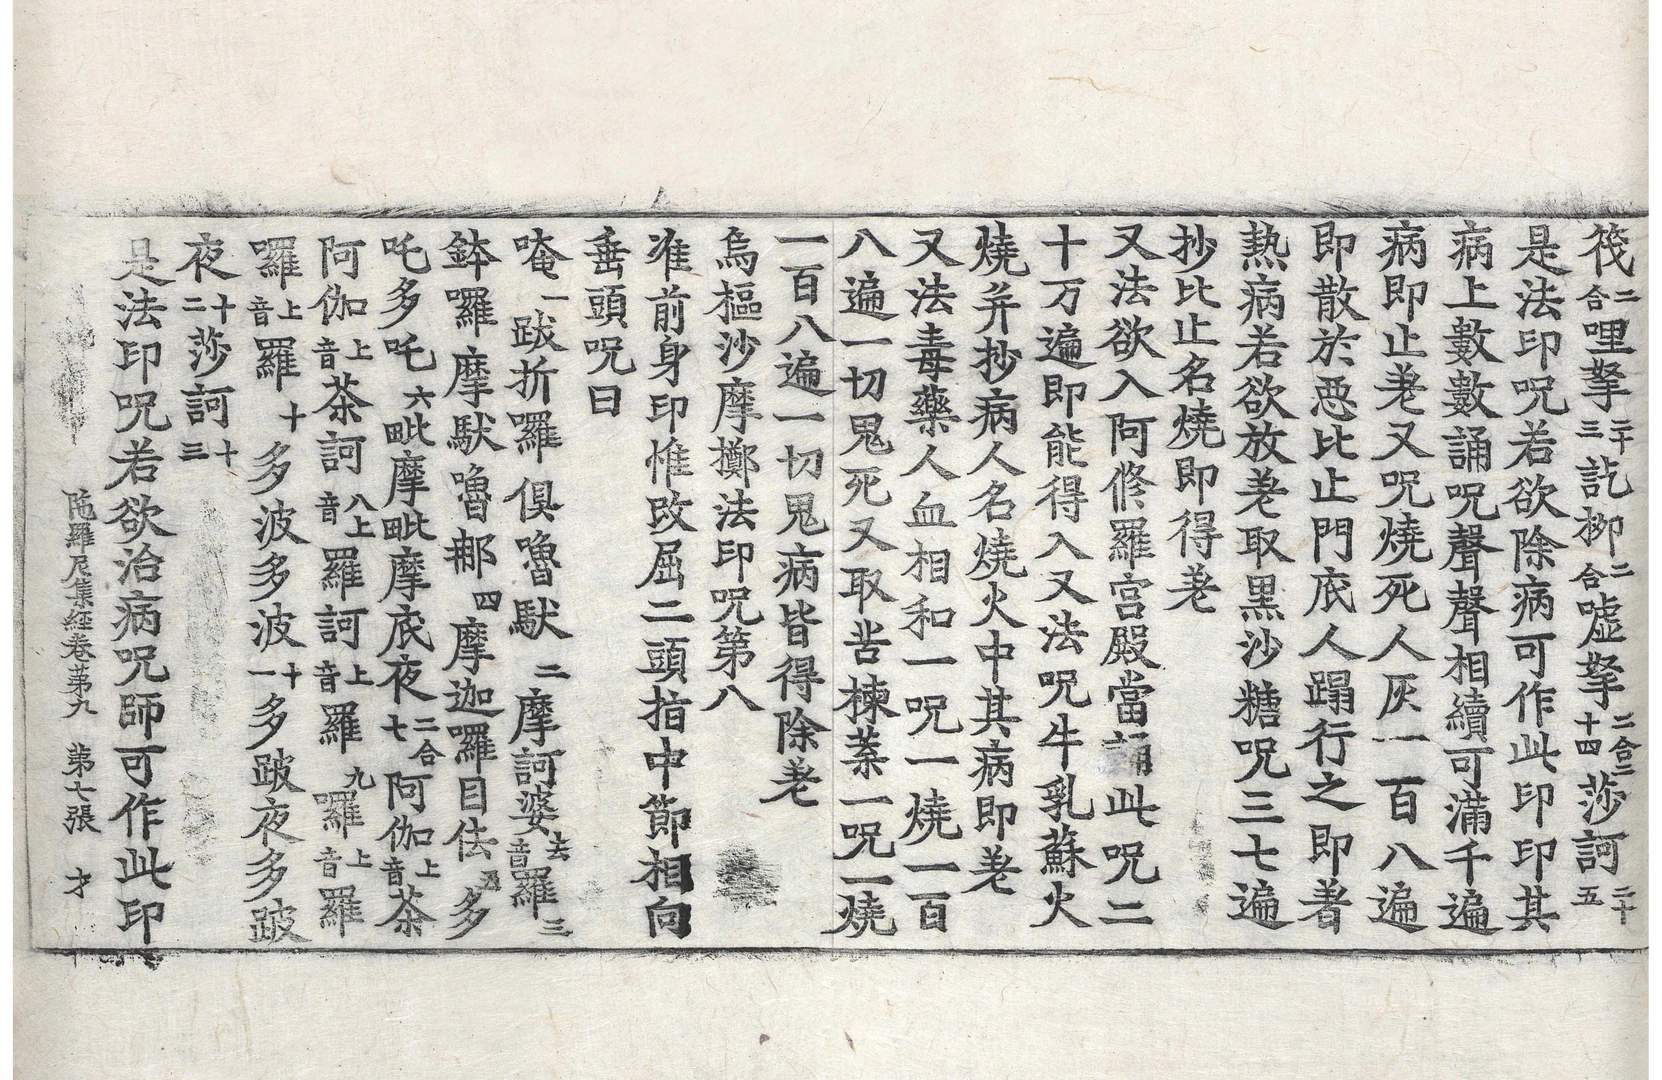 筏二合哩拏二十三訖栁二合嘘拏二合二十四莎訶二十五
是法印呪若欲除病可作此印印其
病上數數誦呪聲聲相續可滿千遍
病即止差又呪燒死人灰一百八遍
即散於惡比止門底人蹋行之即著
熱病若欲放差取黑沙糖呪三七遍
抄比止名燒即得差
又法欲入阿修羅宫殿當誦此呪二
十万遍即能得入又法呪牛乳蘇火
燒并抄病人名燒火中其病即差
又法毒藥人血相和一呪一燒一百
八遍一切鬼死又取苦楝葉一呪一燒
一百八遍一切鬼病皆得除差
烏樞沙摩擲法印呪第八
准前身印惟改屈二頭指中節相向
垂頭呪曰
唵一跋折囉俱嚕馱二摩訶婆去音羅三
鉢囉摩馱嚕𨚗四摩迦囉目佉五多
吒多吒六毗摩毗摩底夜二合七阿伽上音茶
阿伽上音茶訶八上音羅訶上音羅九囉上音羅
囉上音羅十多波多波十一多跛夜多跛
夜十二莎訶十三
是法印呪若欲治病呪師可作此印
陁羅尼集經卷苐九　苐七張　才